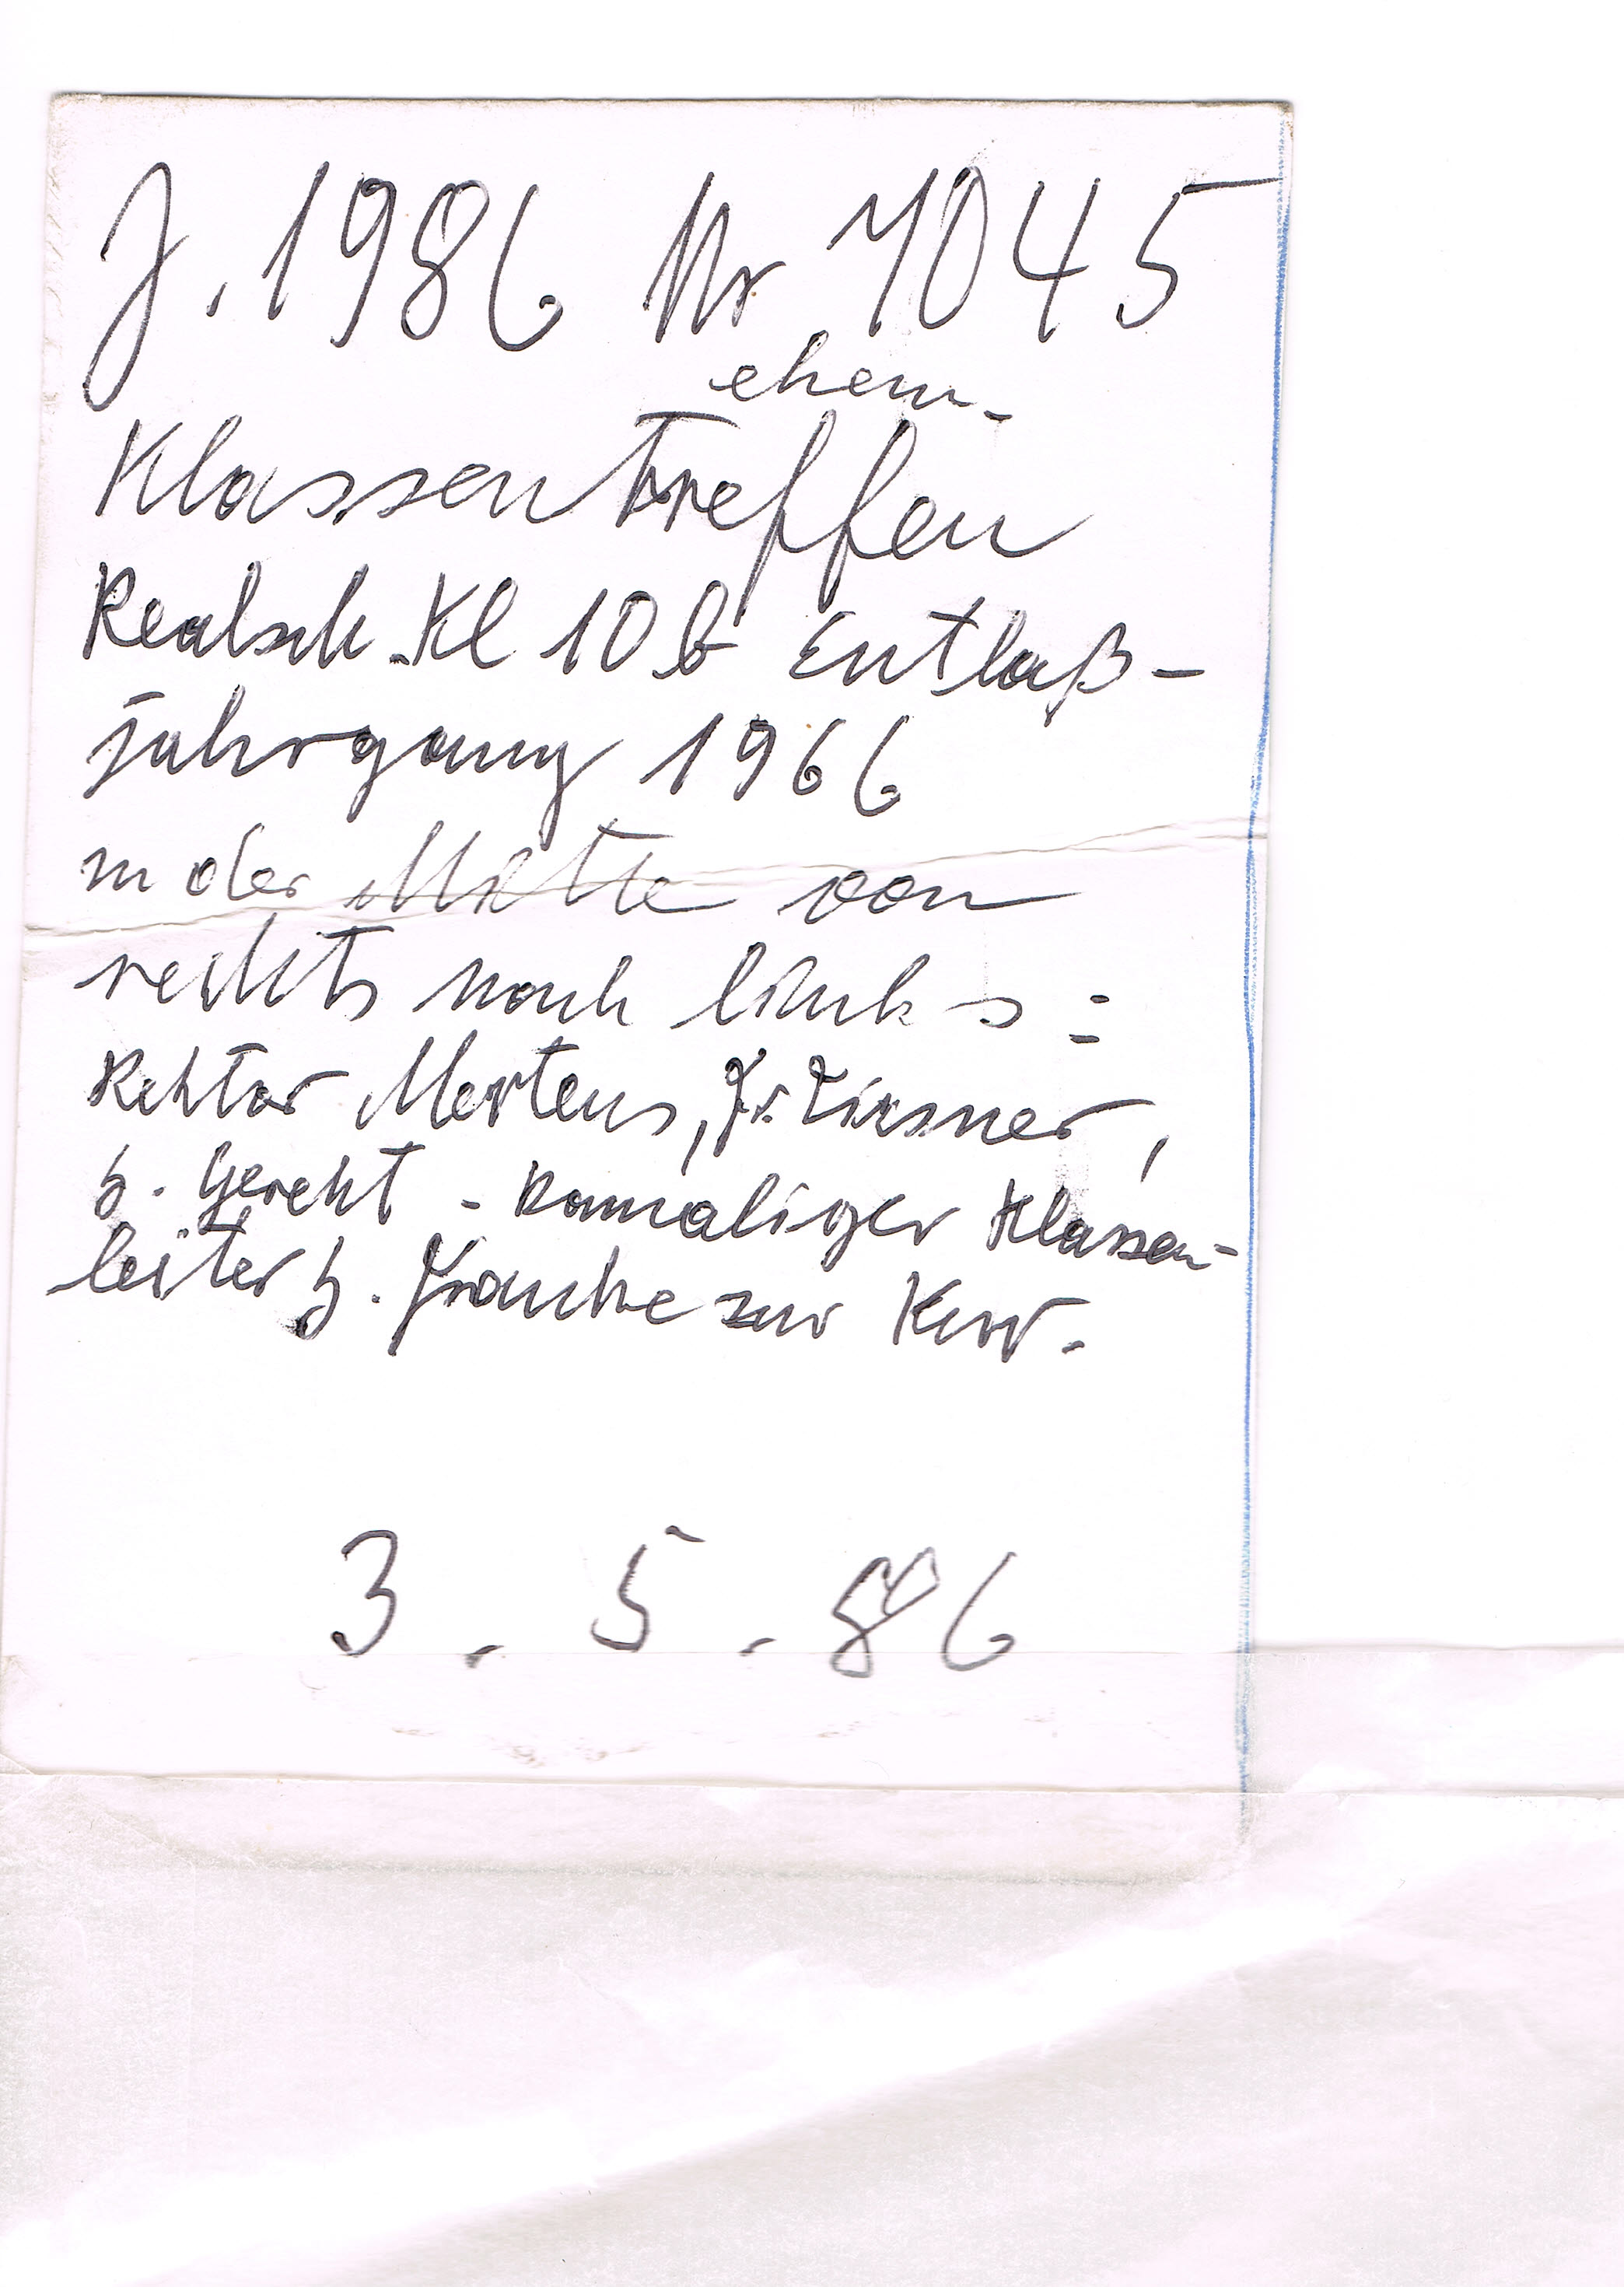 J. 1986 Nr. 1045
ehem.
Klassentreffen
Realsch.Kl 10b Entlaß-
jahrgang 1966
in der Mitte von
rechts nach links:
Rektor Mertens, Fr.
H. Gereht - damaliger Klassen-
leiter H. Franke zur Kur.
3.5.86